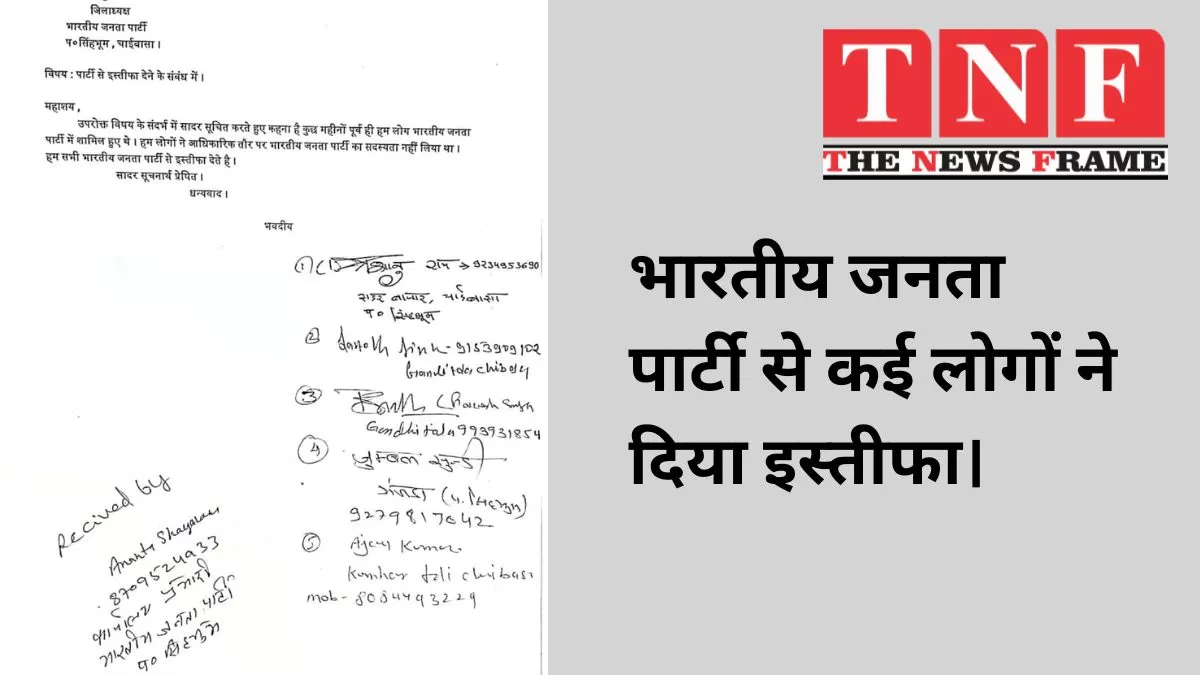 जिलाध्यक्ष
भारतीय जनता पार्टी
प०सिंहभूम , चाईबासा ।
विषय : पार्टी से इस्तीफा देने के संबंध में ।
महाशय ,
उपरोक्त विषय के संदर्भ में सादर सूचित करते हुए कहना है कुछ महीनों पूर्व ही हम लोग भारतीय जनता
पार्टी में शामिल हुए थे । हम लोगों ने आधिकारिक तौर पर भारतीय जनता पार्टी का सदस्यता नहीं लिया था ।
हम सभी भारतीय जनता पार्टी से इस्तीफा देते है ।
सादर सूचनार्थ प्रेषित ।
धन्यवाद ।
भवदीय
(1) राम → 9234953690
सदर बाजार, चाईबासा
प० सिंहभूम
(2) - 9153909102
(3)
Gandhitola 993931854
(4)
9279817642
(5) Ajay Kumar
Kumhar toli chaibasa
mob- 8084493229
Recived by
8709524933
कार्यालय प्रभारी
भारतीय जनता पार्टी
प० सिंहभूम
TNF
THE NEWS FRAME
भारतीय जनता
पार्टी से कई लोगों ने
दिया इस्तीफा।